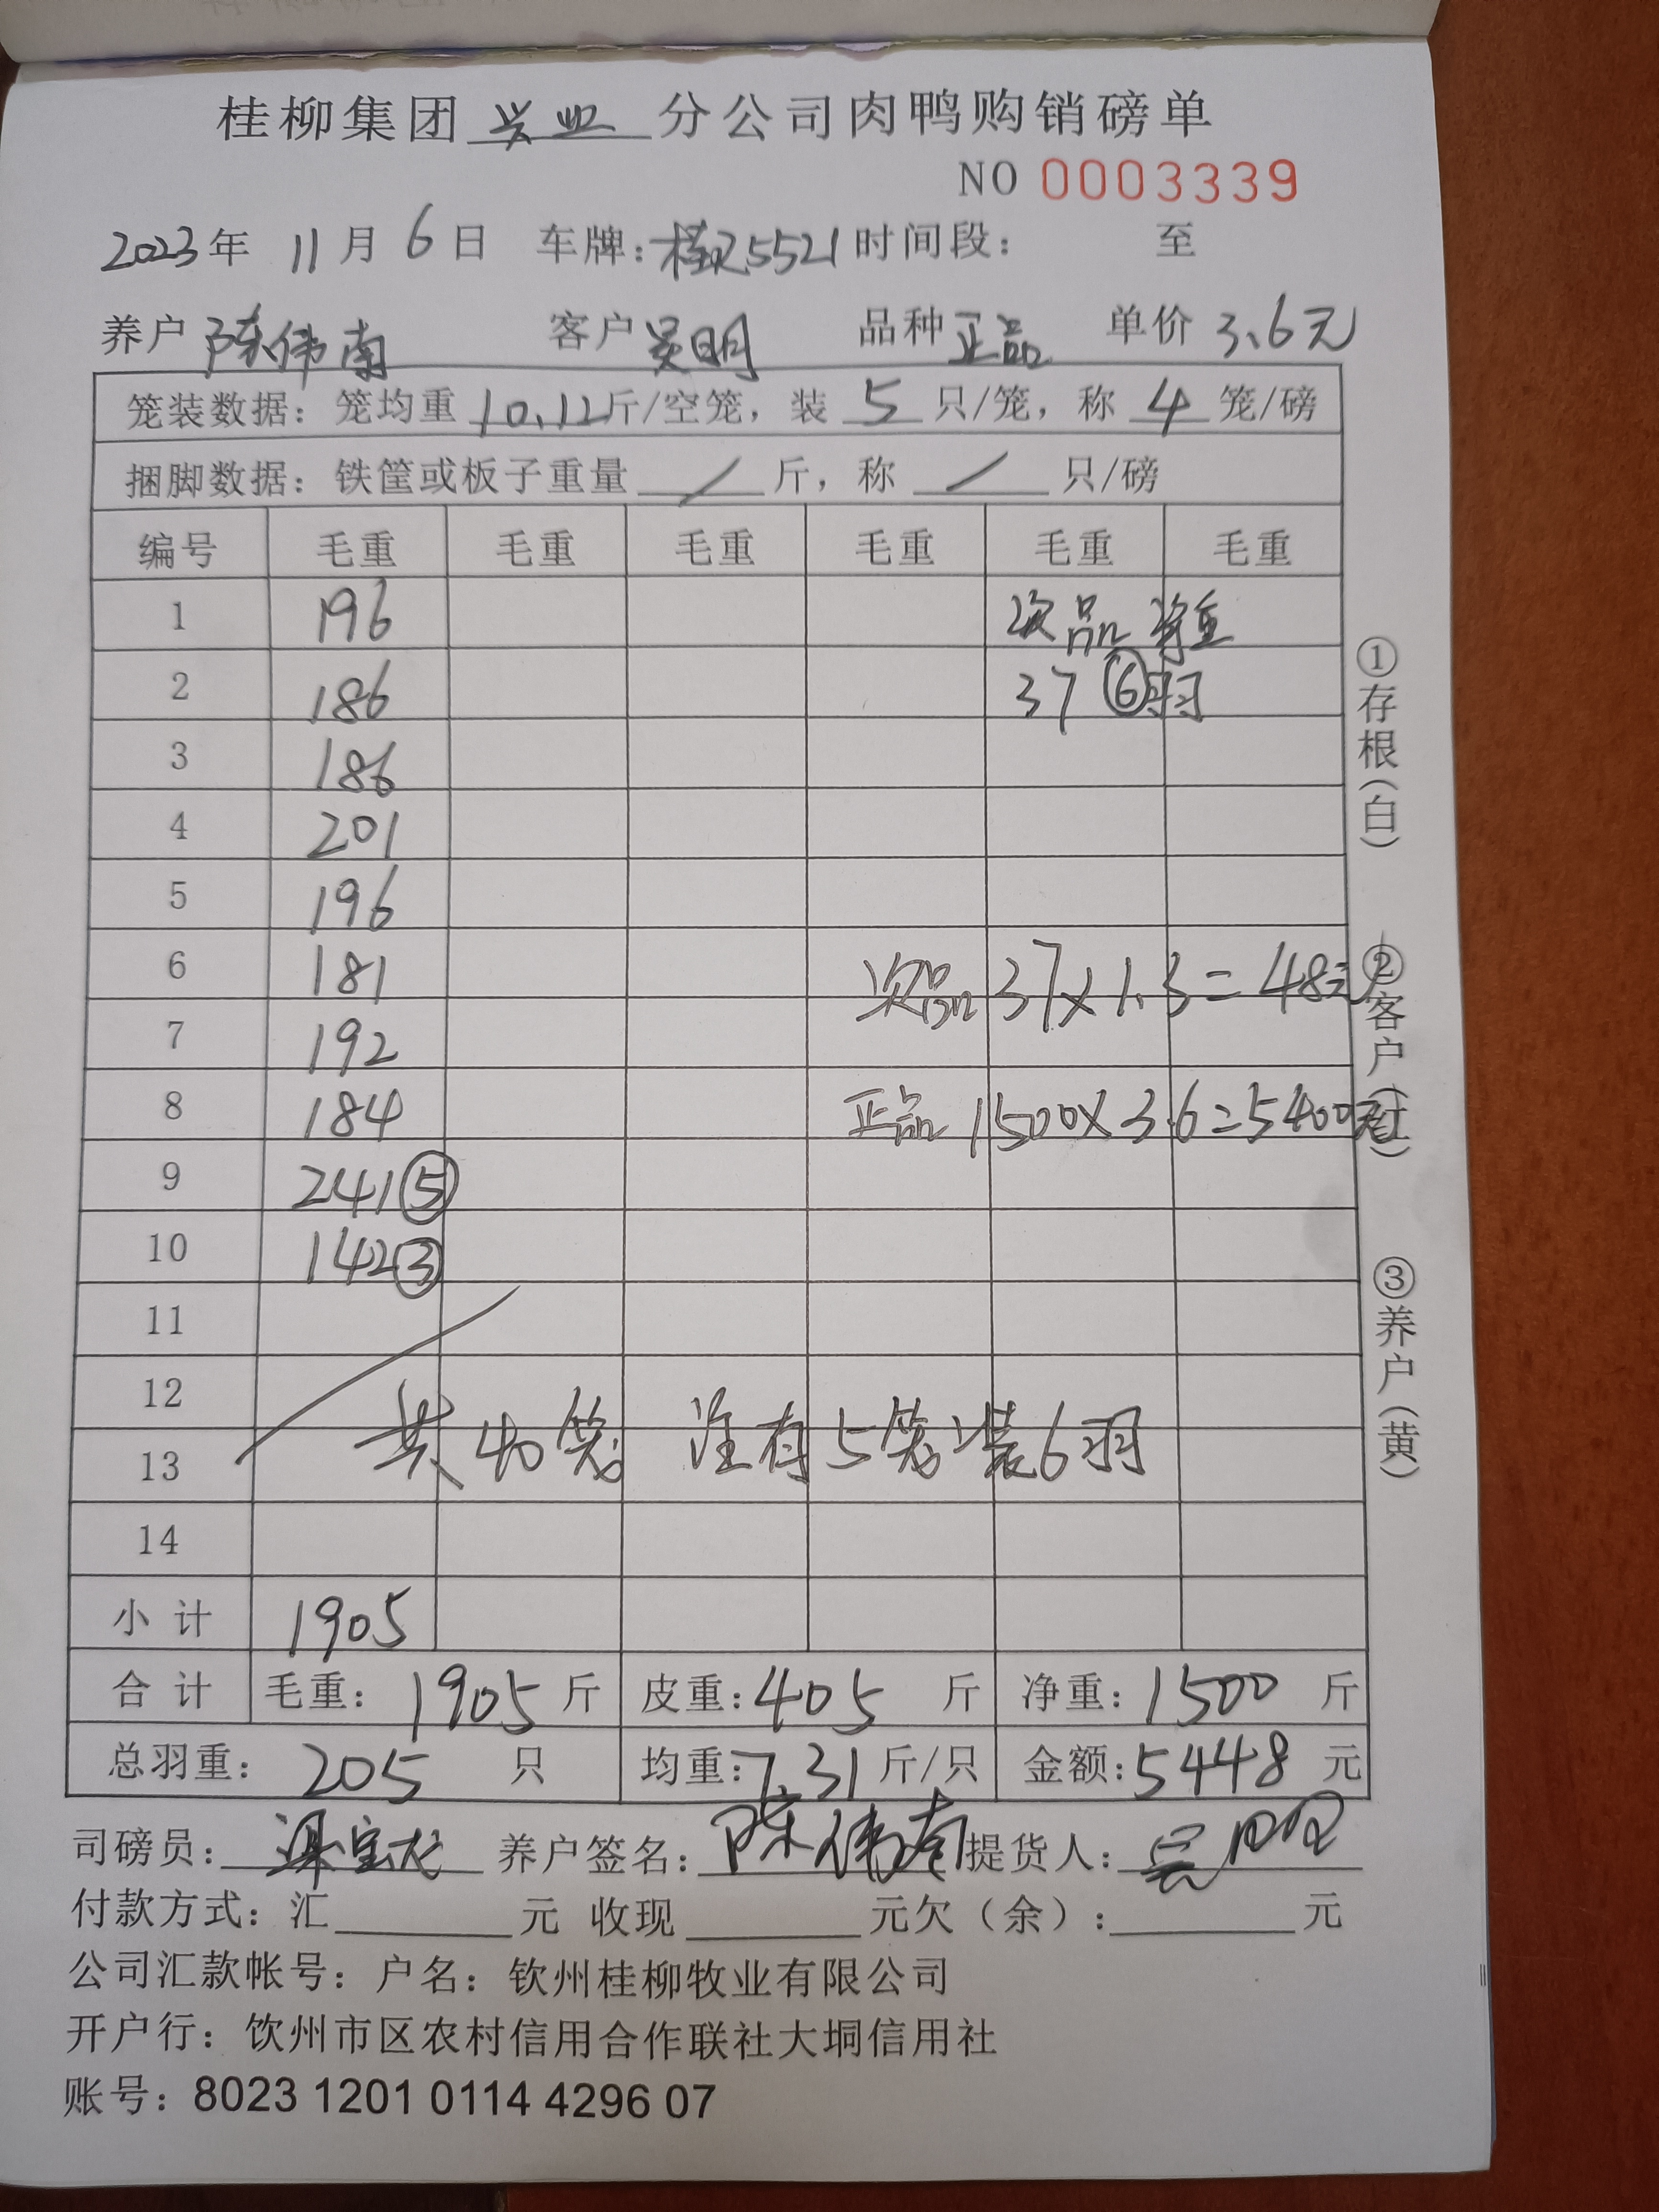 桂柳集团 兴业 分公司肉鸭购销磅单
NO 0003339
2023年 11月 6日 车牌:桂R5521 时间段: 至
养户 陈伟南 客户 吴明 品种 正品 单价 3.6元
笼装数据: 笼均重 10.12斤/空笼, 装 5 只/笼, 称 4 笼/磅
捆脚数据: 铁筐或板子重量 / 斤, 称 / 只/磅
编号 毛重 毛重 毛重 毛重 毛重 毛重
1 196 次品 净重
2 186 37 ⑥羽
3 186
4 201
5 196
6 181 次品 37×1.3=48元
7 192
8 184 正品 1500×3.6=5400元
9 241⑤
10 142③
11
12
共40笼 注有5笼装6羽
13
14
小计 1905
合计 毛重: 1905 斤 皮重: 405 斤 净重: 1500 斤
总羽重: 205 只 均重: 7.31 斤/只 金额: 5448 元
司磅员: 养户签名: 陈伟南 提货人:
付款方式: 汇 元 收现 元欠(余): 元
公司汇款帐号: 户名: 钦州桂柳牧业有限公司
开户行: 钦州市区农村信用合作联社大垌信用社
账号: 8023 1201 0114 4296 07
①存根(白)
②客户(红)
③养户(黄)